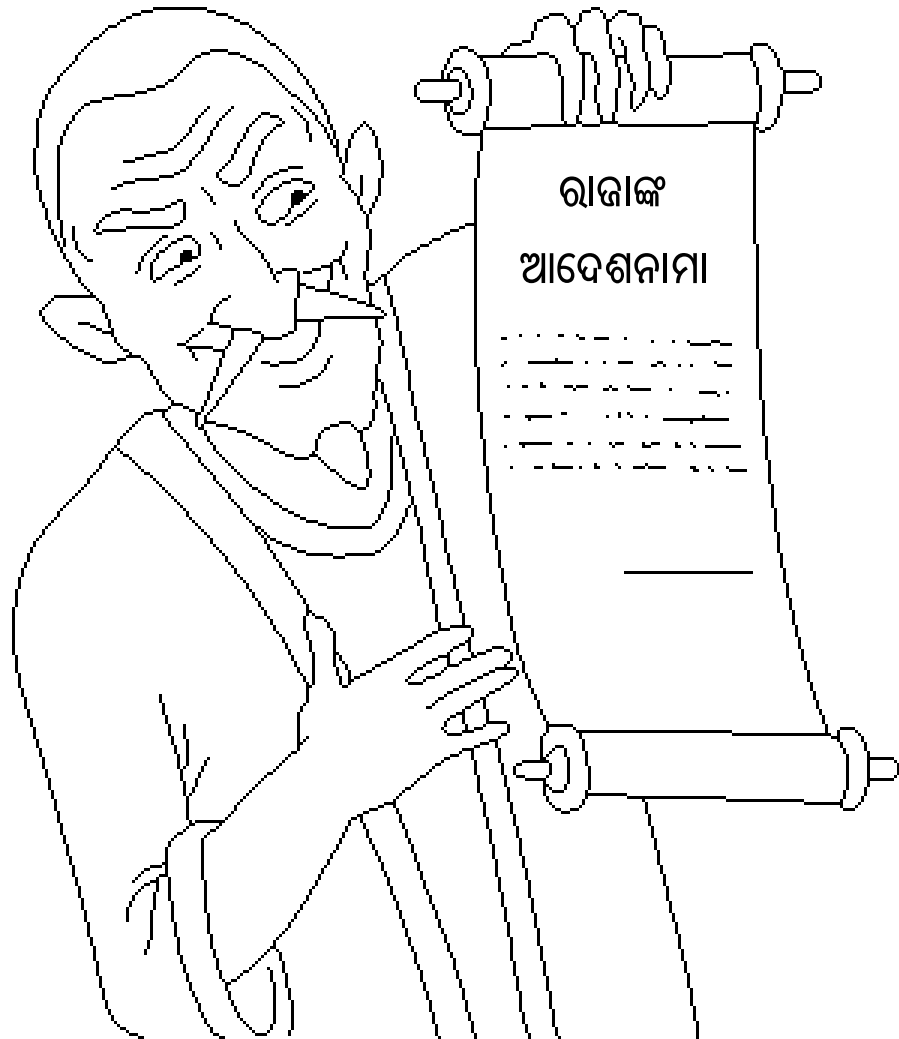 ରାଜାଙ୍କ
ଆଦେଶନାମା